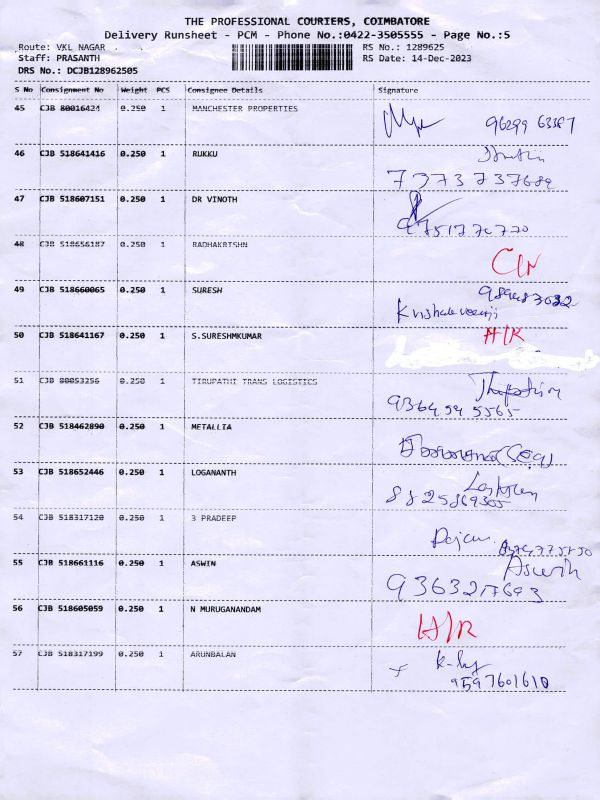 THE PROFESSIONAL COURIERS, COIMBATORE
Delivery Runsheet - PCM - Phone No.:0422-3505555 - Page No.:5
Route: VKL NAGAR RS No.: 1289625
Staff: PRASANTH RS Date: 14-Dec-2023
DRS No.: DCJB128962505
S No Consignment No Weight PCS Consignee Details Signature
45 CJB 80016424 0.250 1 MANCHESTER PROPERTIES
96299 63387
46 CJB 518641416 0.250 1 RUKKU
7373737682
47 CJB 518607151 0.250 1 DR VINOTH
9751776770
48 CJB 518656187 0.250 1 RADHAKRISHN
49 CJB 518660065 0.250 1 SURESH
50 CJB 518641167 0.250 1 S.SURESHMKUMAR H/R
51 CJB 80053256 0.250 1 TIRUPATHI TRANS LOGISTICS
9364 594 5565
52 CJB 518462890 0.250 1 METALLIA
53 CJB 518652446 0.250 1 LOGANANTH
8825869305
54 CJB 518317120 0.250 1 3 PRADEEP
55 CJB 518661116 0.250 1 ASWIN Aswin
9363217693
56 CJB 518605059 0.250 1 N MURUGANANDAM H/R
57 CJB 518317199 0.250 1 ARUNBALAN
9597601610